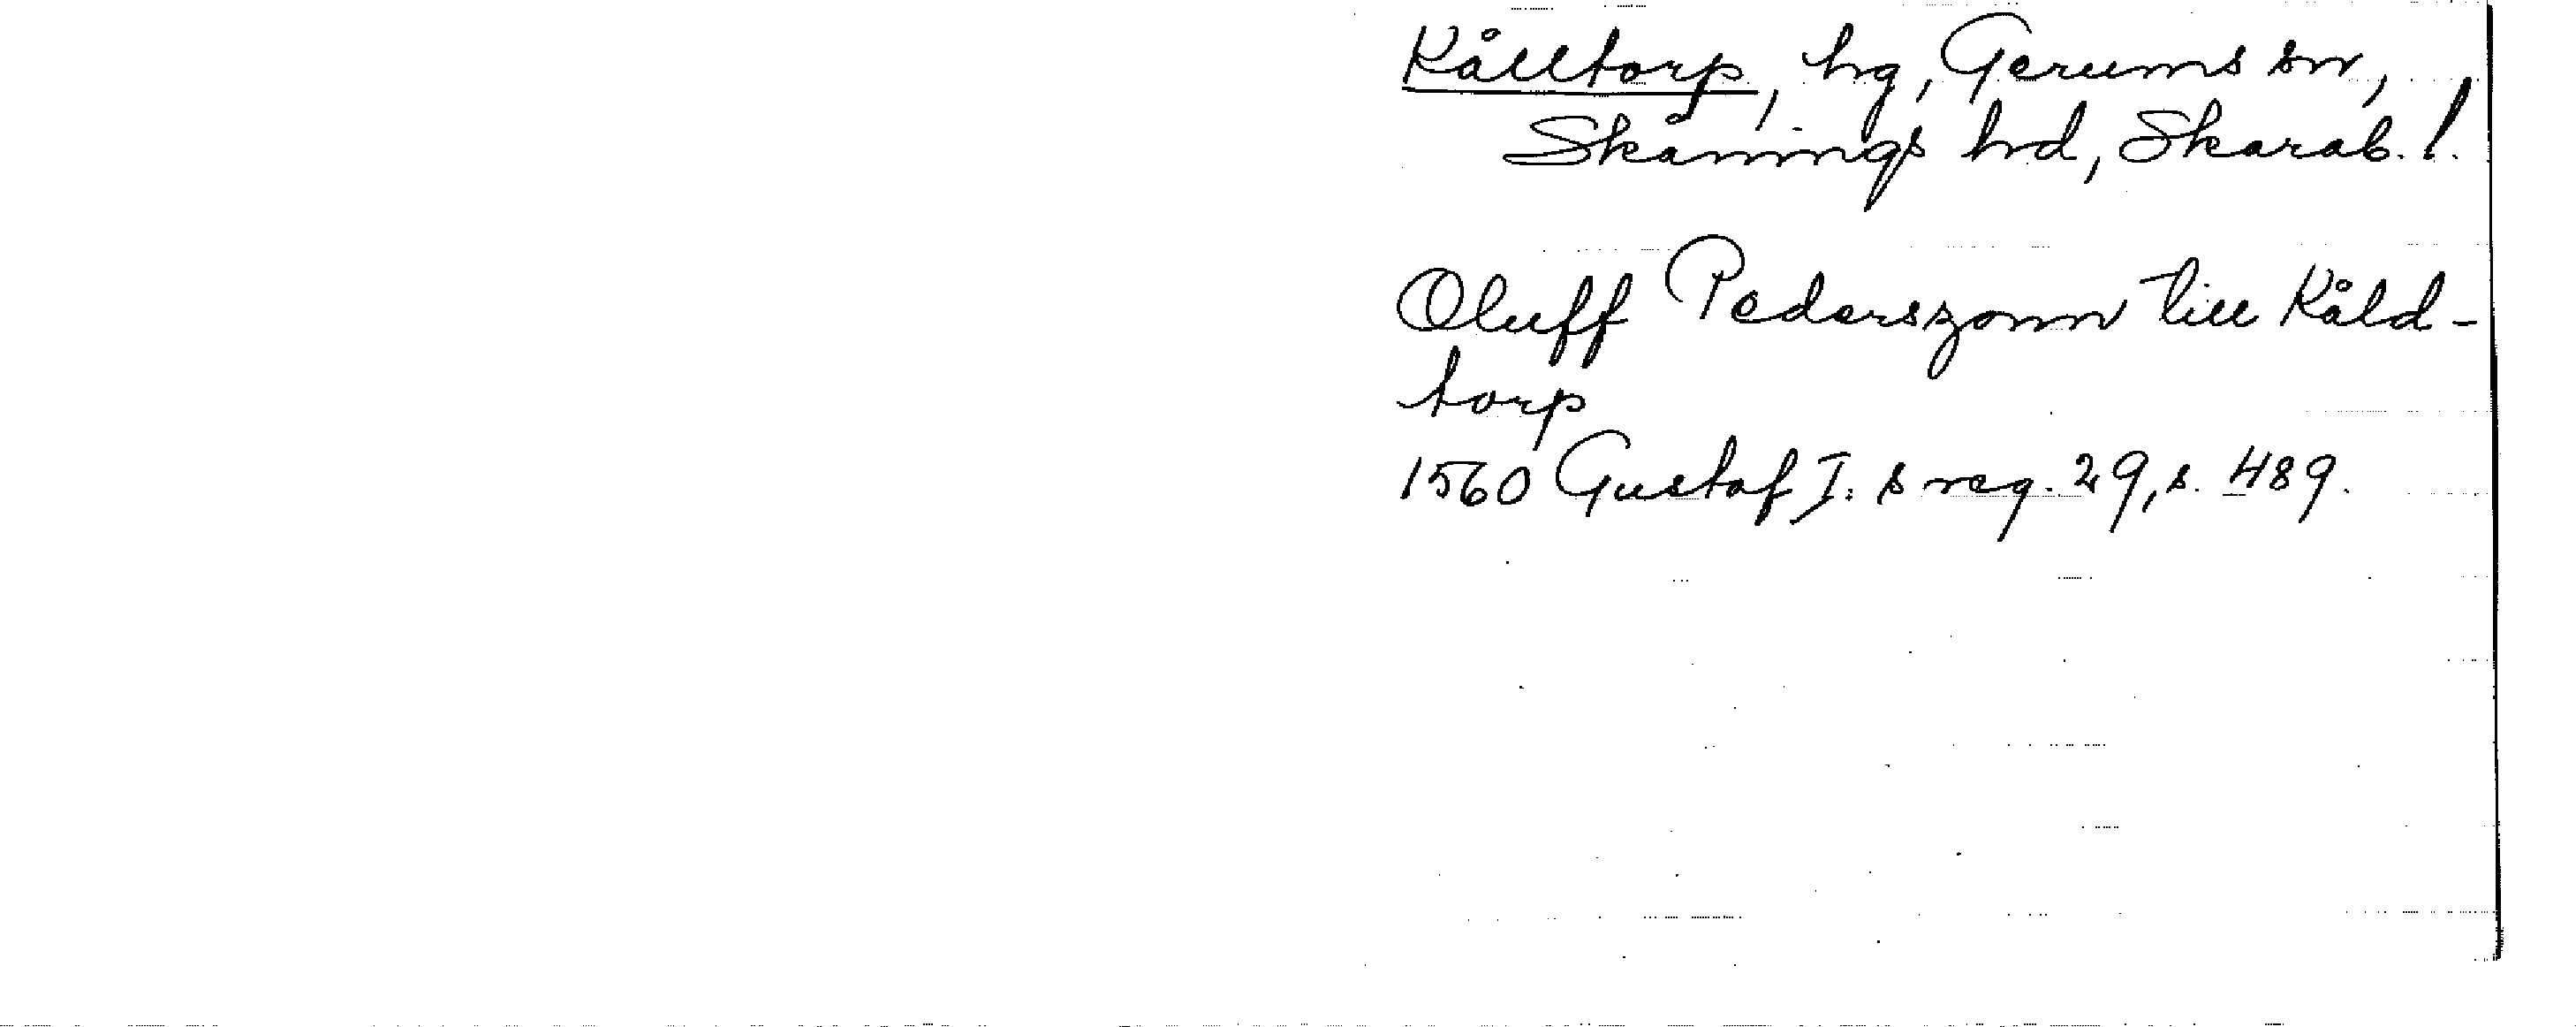 Kålltorp, hg, Gerums sn,
Skånings hd, Skarab. l.
Oluff Pederszonn till Kåld-
torp
1560 Gustaf I:s reg. 29, s. 489.